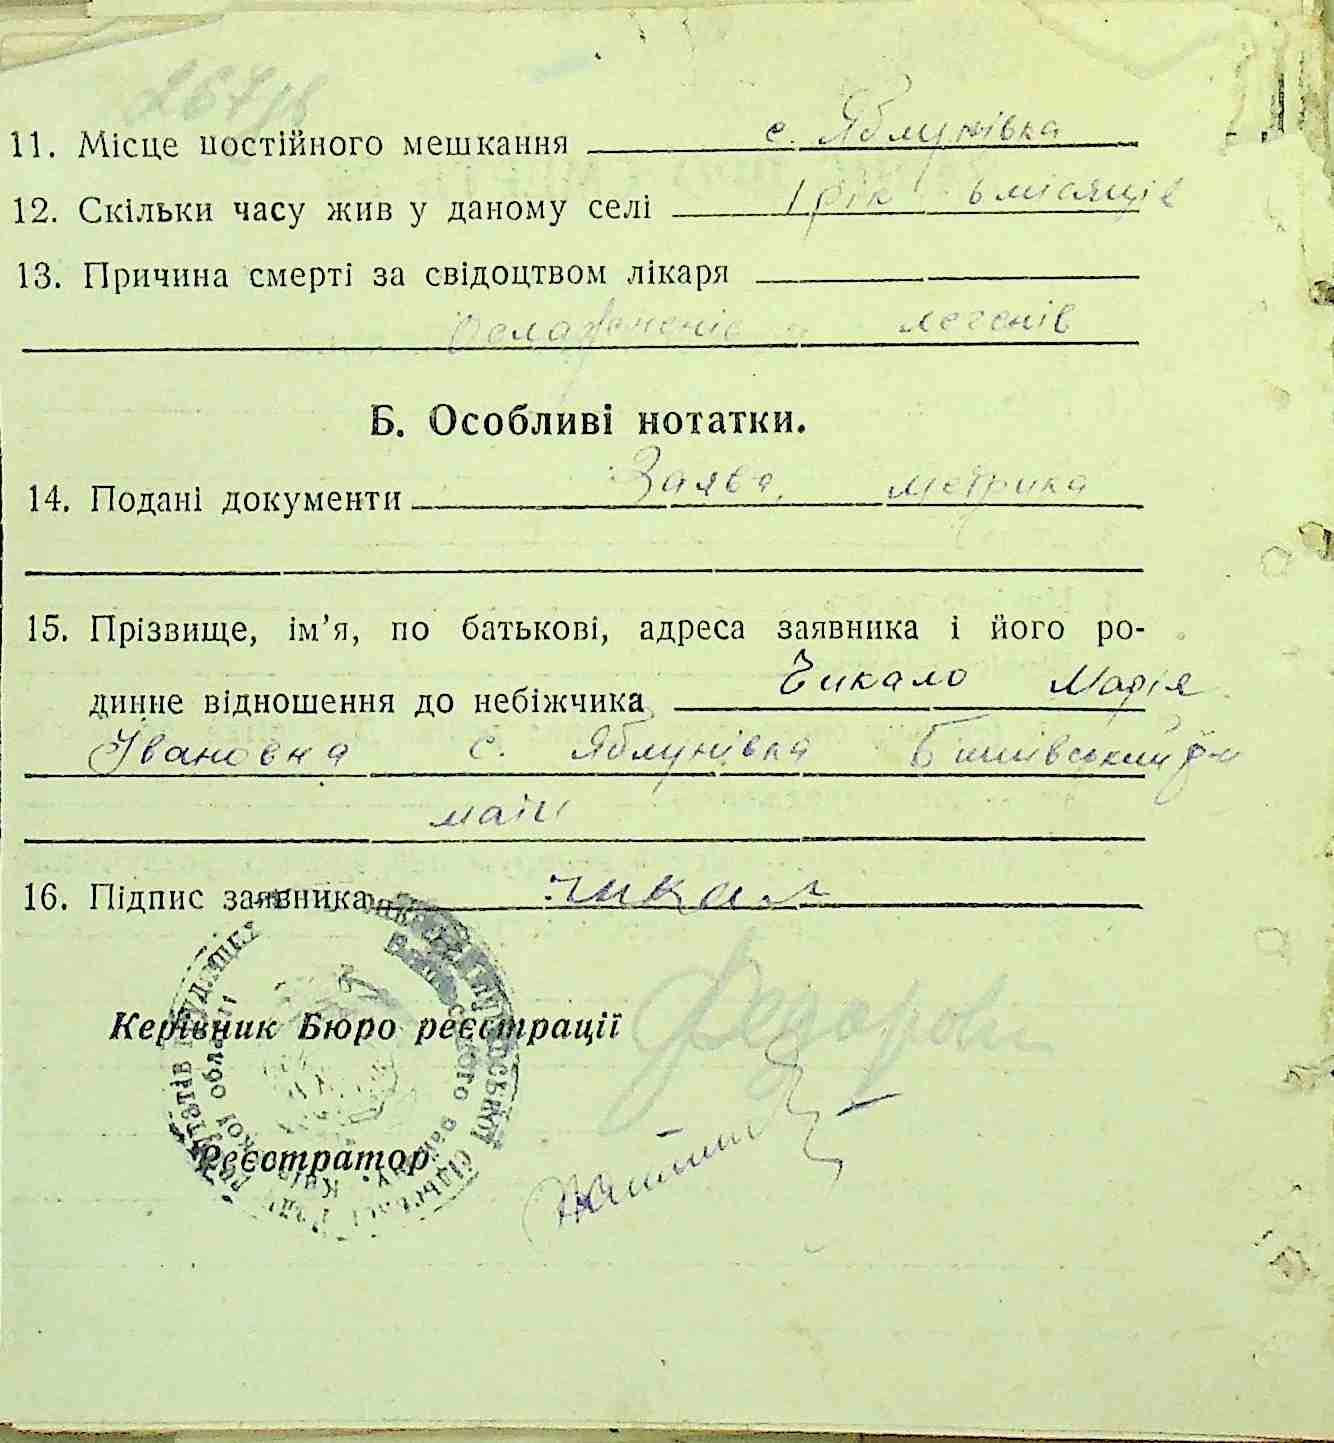 267 зв
11. Місце постійного мешкання с. Яблунівка
12. Скільки часу жив у даному селі 1 рік 6 місяців
13. Причина смерті за свідоцтвом лікаря
легенів
Б. Особливі нотатки.
14. Подані документи Заява, метрика
15. Прізвище, ім'я, по батькові, адреса заявника і його ро-
динне відношення до небіжчика Чикало Марія
Івановна с. Яблунівка Бишівський р-н
мати
16. Підпис заявника Чикал
Керівник Бюро реєстрації Федорови
Реєстратор